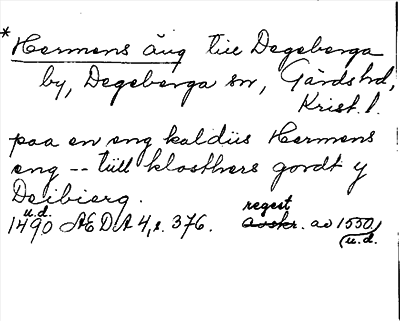 * Hermens äng till Degeberga
by, Degeberga sn, Gärds hd,
Krist. l.
paa en eng kaldiis Hermens
eng -- tiill klosthers gordt y
Deibierg.
u.d. regest
1490 AEDA 4, s. 376. avskr. av 1550
(u.d.